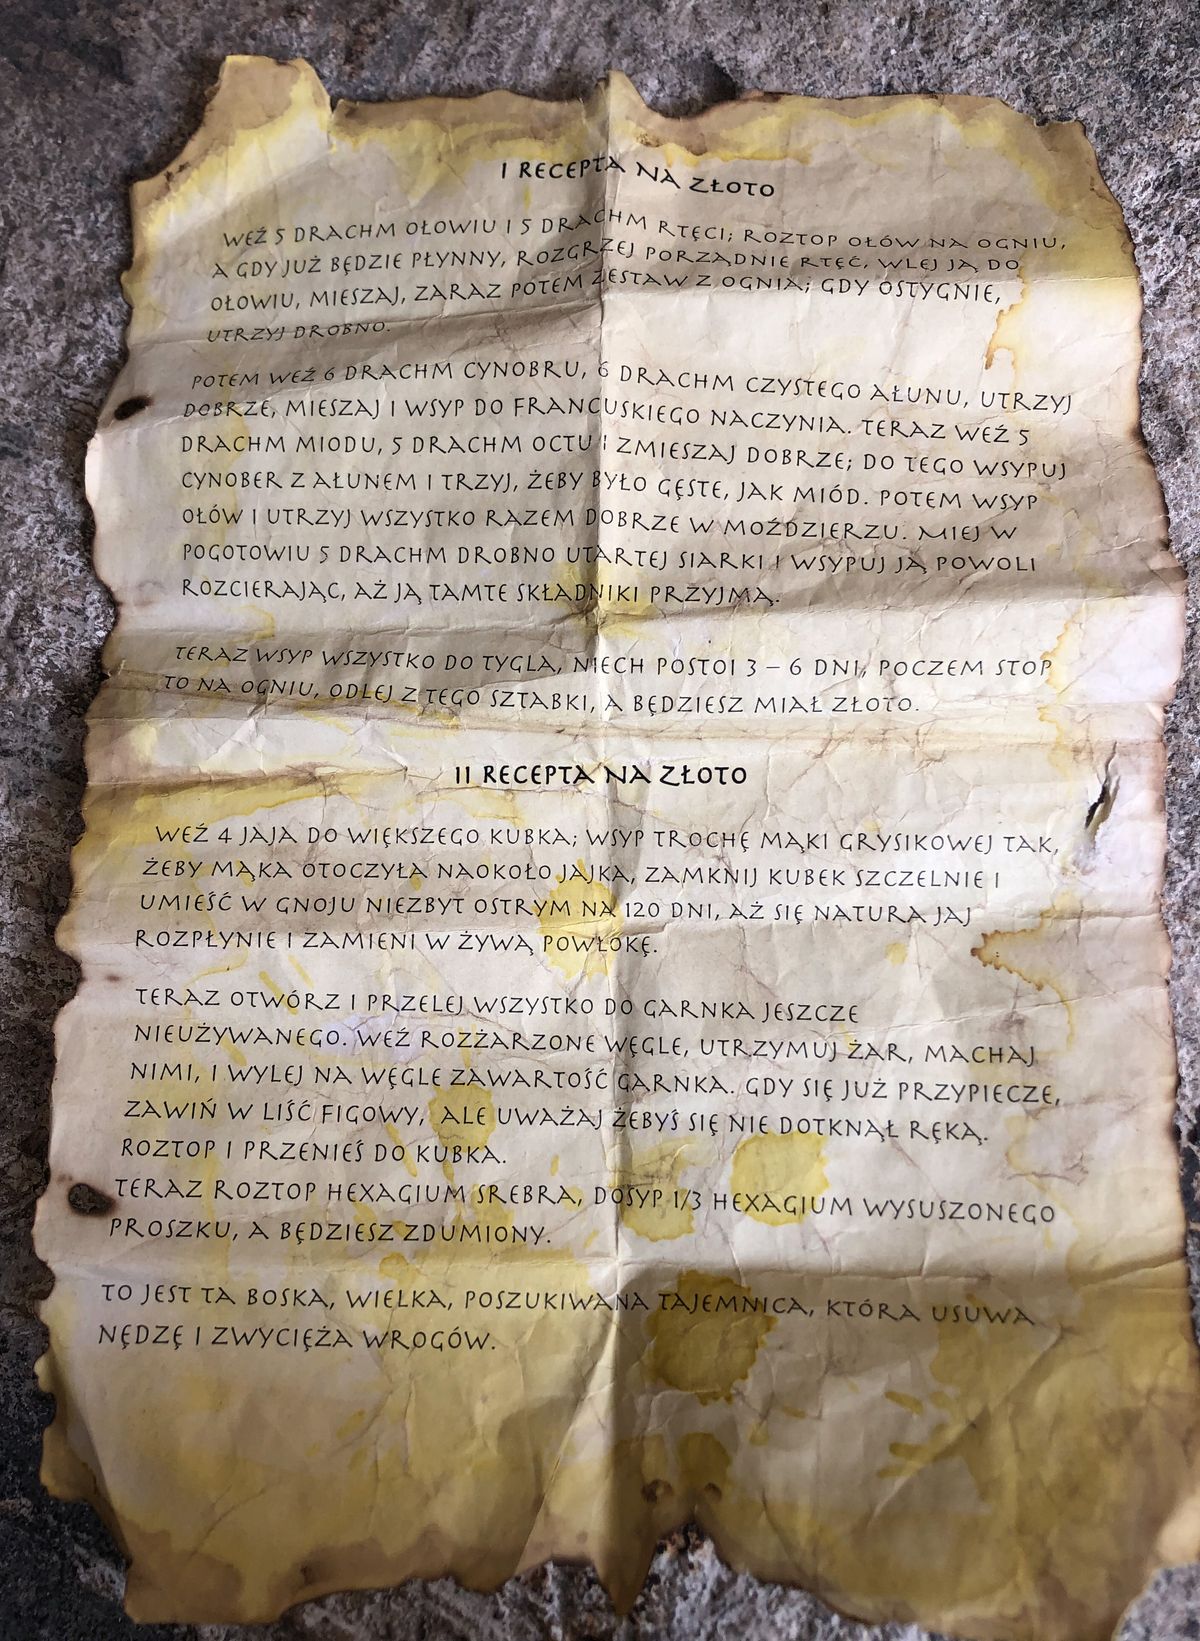 I RECEPTA NA ZŁOTO
WEŹ 5 DRACHM OŁOWIU I 5 DRACHM RTĘCI; ROZTOP OŁÓW NA OGNIU,
A GDY JUŻ BĘDZIE PŁYNNY, ROZGRZEJ PORZĄDNIE RTĘĆ, WLEJ JĄ DO
OŁOWIU, MIESZAJ, ZARAZ POTEM ZESTAW Z OGNIA; GDY OSTYGNIE,
UTRZYJ DROBNO.
POTEM WEŹ 6 DRACHM CYNOBRU, 6 DRACHM CZYSTEGO AŁUNU, UTRZYJ
DOBRZE, MIESZAJ I WSYP DO FRANCUSKIEGO NACZYNIA. TERAZ WEŹ 5
DRACHM MIODU, 5 DRACHM OCTU I ZMIESZAJ DOBRZE; DO TEGO WSYPUJ
CYNOBER Z AŁUNEM I TRZYJ, ŻEBY BYŁO GĘSTE, JAK MIÓD. POTEM WSYP
OŁÓW I UTRZYJ WSZYSTKO RAZEM DOBRZE W MOŹDZIERZU. MIEJ W
POGOTOWIU 5 DRACHM DROBNO UTARTEJ SIARKI I WSYPUJ JĄ POWOLI
ROZCIERAJĄC, AŻ JĄ TAMTE SKŁADNIKI PRZYJMĄ.
TERAZ WSYP WSZYSTKO DO TYGLA, NIECH POSTOI 3 – 6 DNI, POCZEM STOP
TO NA OGNIU, ODLEJ Z TEGO SZTABKI, A BĘDZIESZ MIAŁ ZŁOTO.
II RECEPTA NA ZŁOTO
WEŹ 4 JAJA DO WIĘKSZEGO KUBKA; WSYP TROCHĘ MĄKI GRYSIKOWEJ TAK,
ŻEBY MĄKA OTOCZYŁA NAOKOŁO JAJKA, ZAMKNIJ KUBEK SZCZELNIE I
UMIEŚĆ W GNOJU NIEZBYT OSTRYM NA 120 DNI, AŻ SIĘ NATURA JAJ
ROZPŁYNIE I ZAMIENI W ŻYWĄ POWŁOKĘ.
TERAZ OTWÓRZ I PRZELEJ WSZYSTKO DO GARNKA JESZCZE
NIEUŻYWANEGO. WEŹ ROZŻARZONE WĘGLE, UTRZYMUJ ŻAR, MACHAJ
NIMI, I WYLEJ NA WĘGLE ZAWARTOŚĆ GARNKA. GDY SIĘ JUŻ PRZYPIECZE,
ZAWIŃ W LIŚĆ FIGOWY, ALE UWAŻAJ ŻEBYŚ SIĘ NIE DOTKNĄŁ RĘKĄ.
ROZTOP I PRZENIEŚ DO KUBKA.
TERAZ ROZTOP HEXAGIUM SREBRA, DOSYP 1/3 HEXAGIUM WYSUSZONEGO
PROSZKU, A BĘDZIESZ ZDUMIONY.
TO JEST TA BOSKA, WIELKA, POSZUKIWANA TAJEMNICA, KTÓRA USUWA
NĘDZĘ I ZWYCIĘŻA WROGÓW.